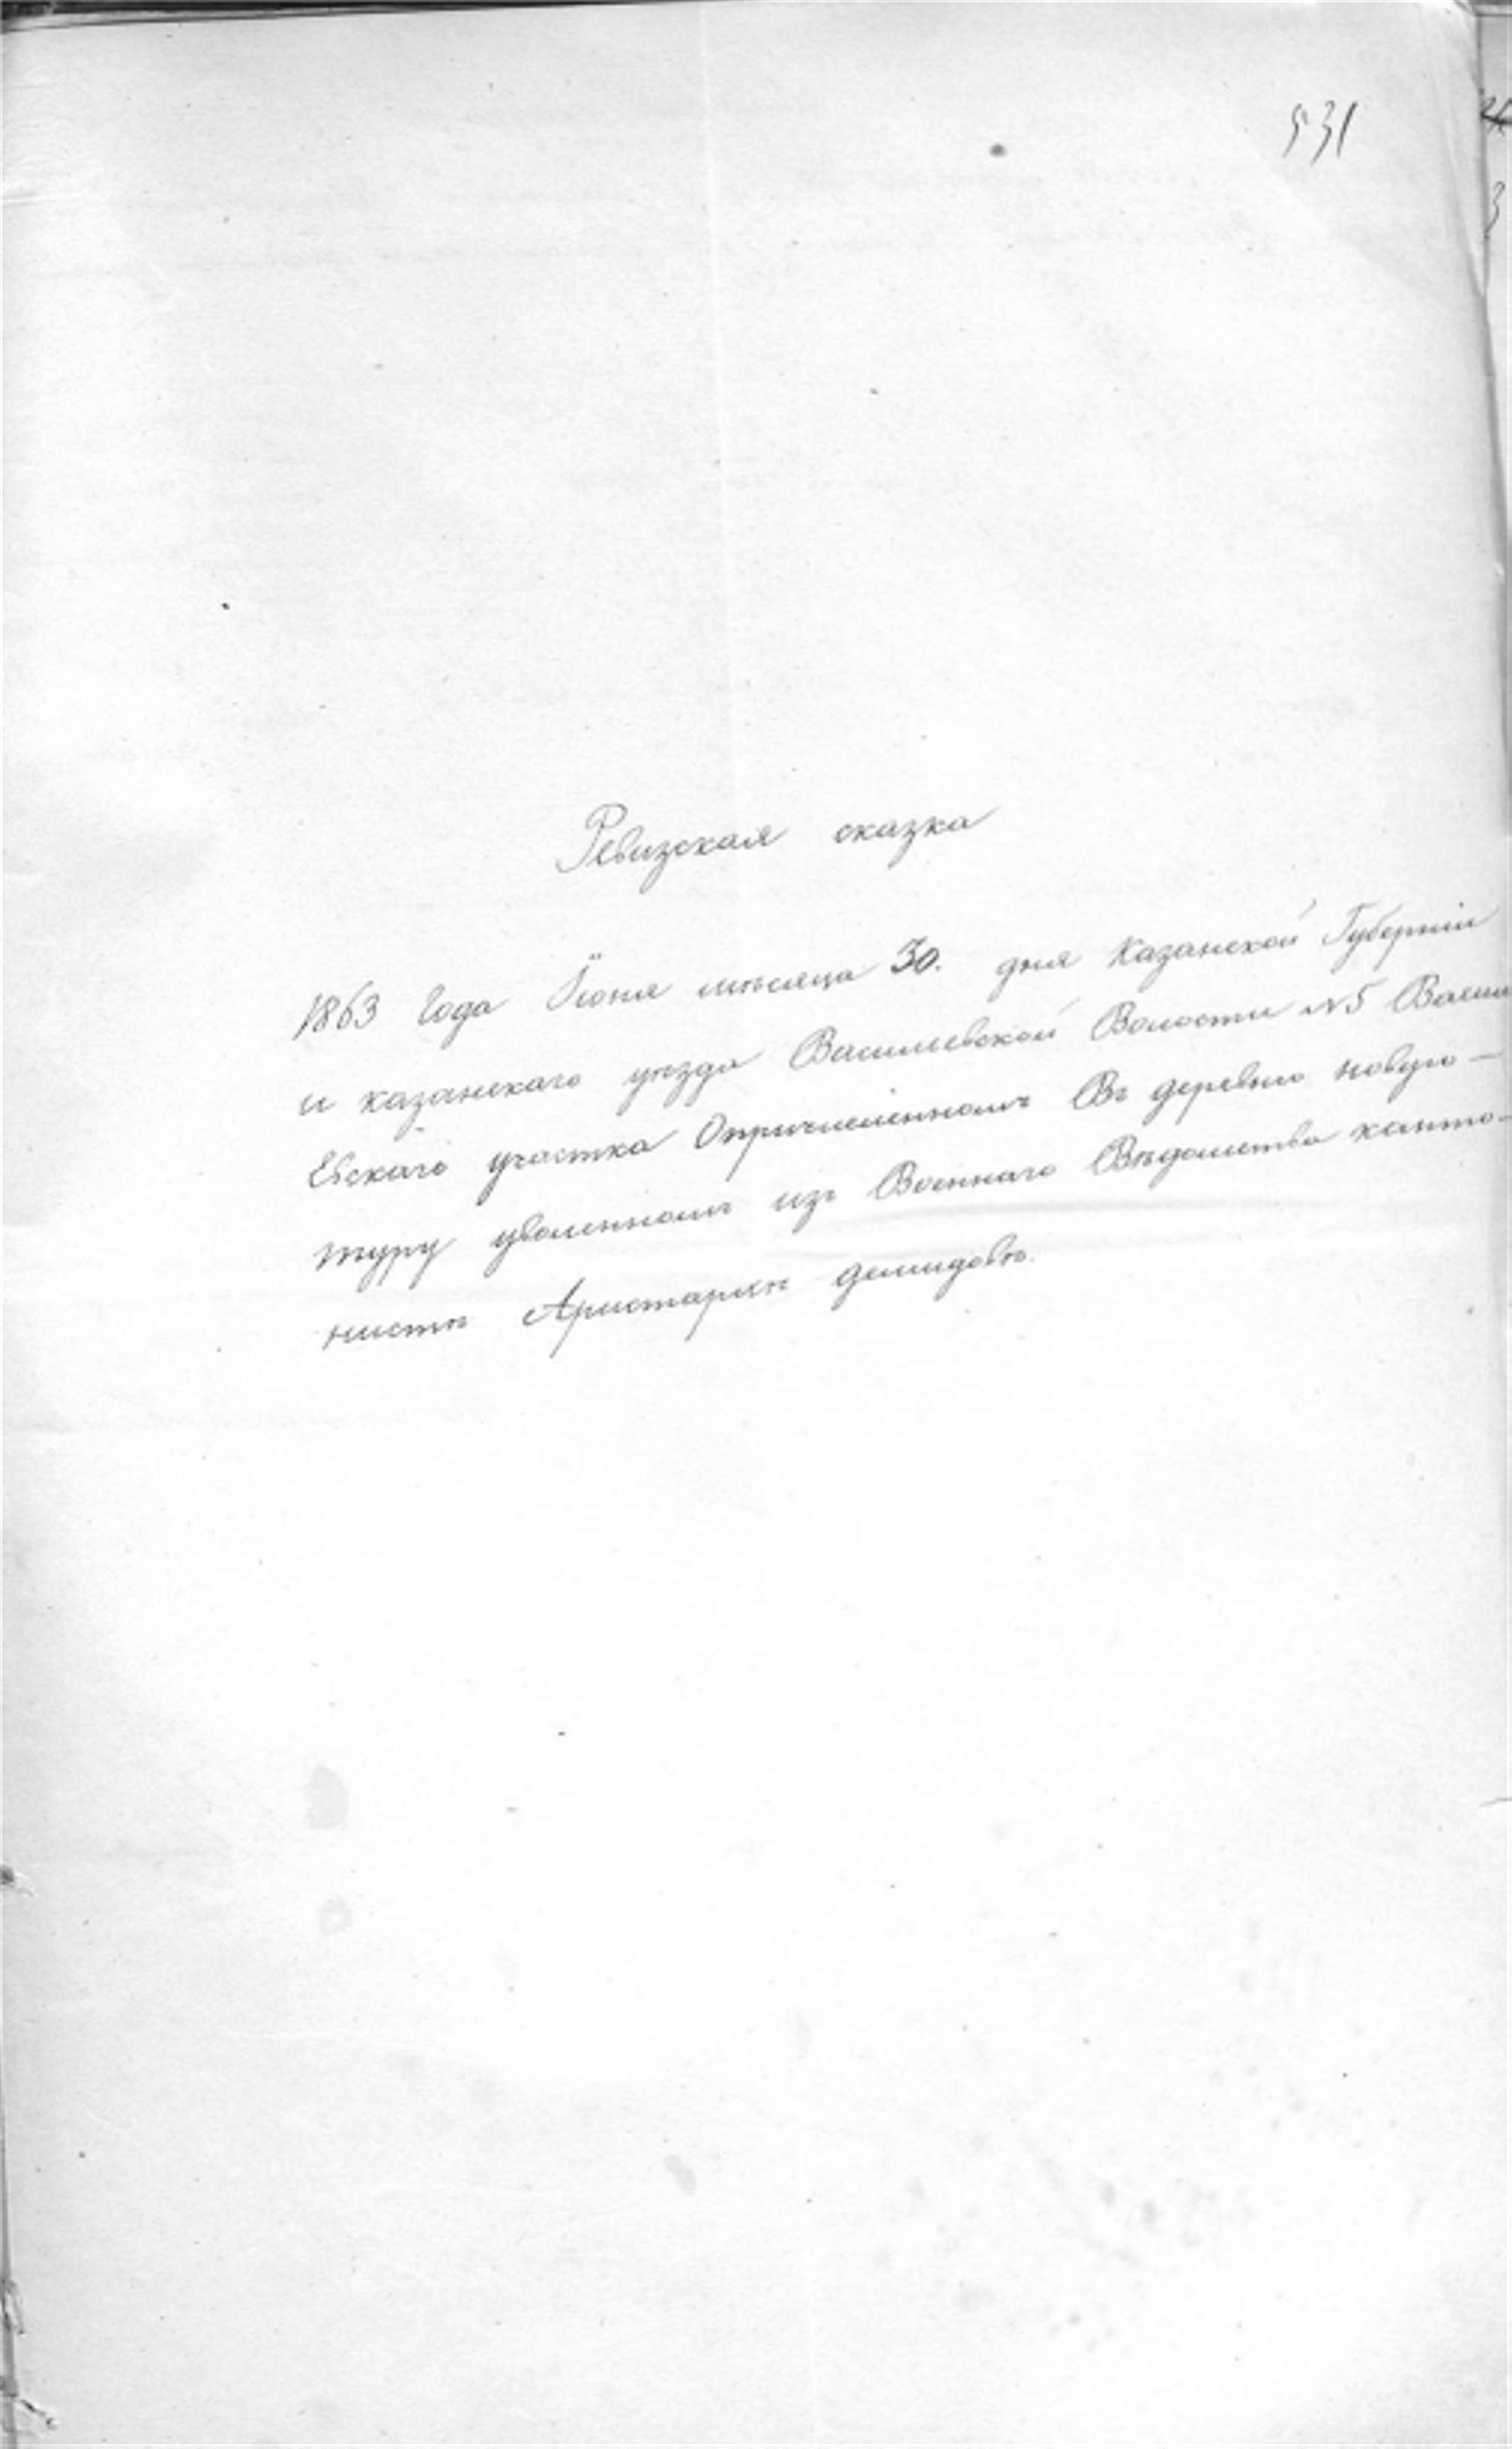 531
Ревизская сказка
1863 Года Іюня мѣсяца 30. дня Казанской Губерніи
и казанскаго уѣзда Василевской Волости №5 Васил
Евскаго участка Опричисленномъ Въ деревню новую-
туру уволенномъ изъ Военнаго Вѣдомстваканто-
нистѣ Аристархѣ демидовѣ.